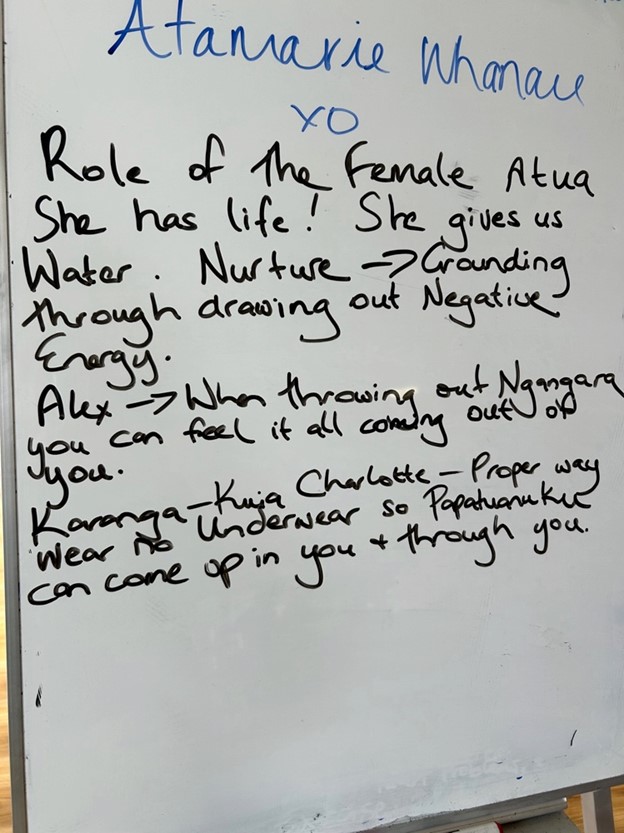 Atamarie Whanau
XO
Role of the Female Atua
She has life! She gives us
Water. Nurture → Grounding
through drawing out Negative
Energy.
Alex → When throwing out Ngangara
you can feel it all coming out of
you.
Karanga - Kuia Charlotte - Proper way
Wear no Underwear so Papatuanuku
can come up in you + through you.